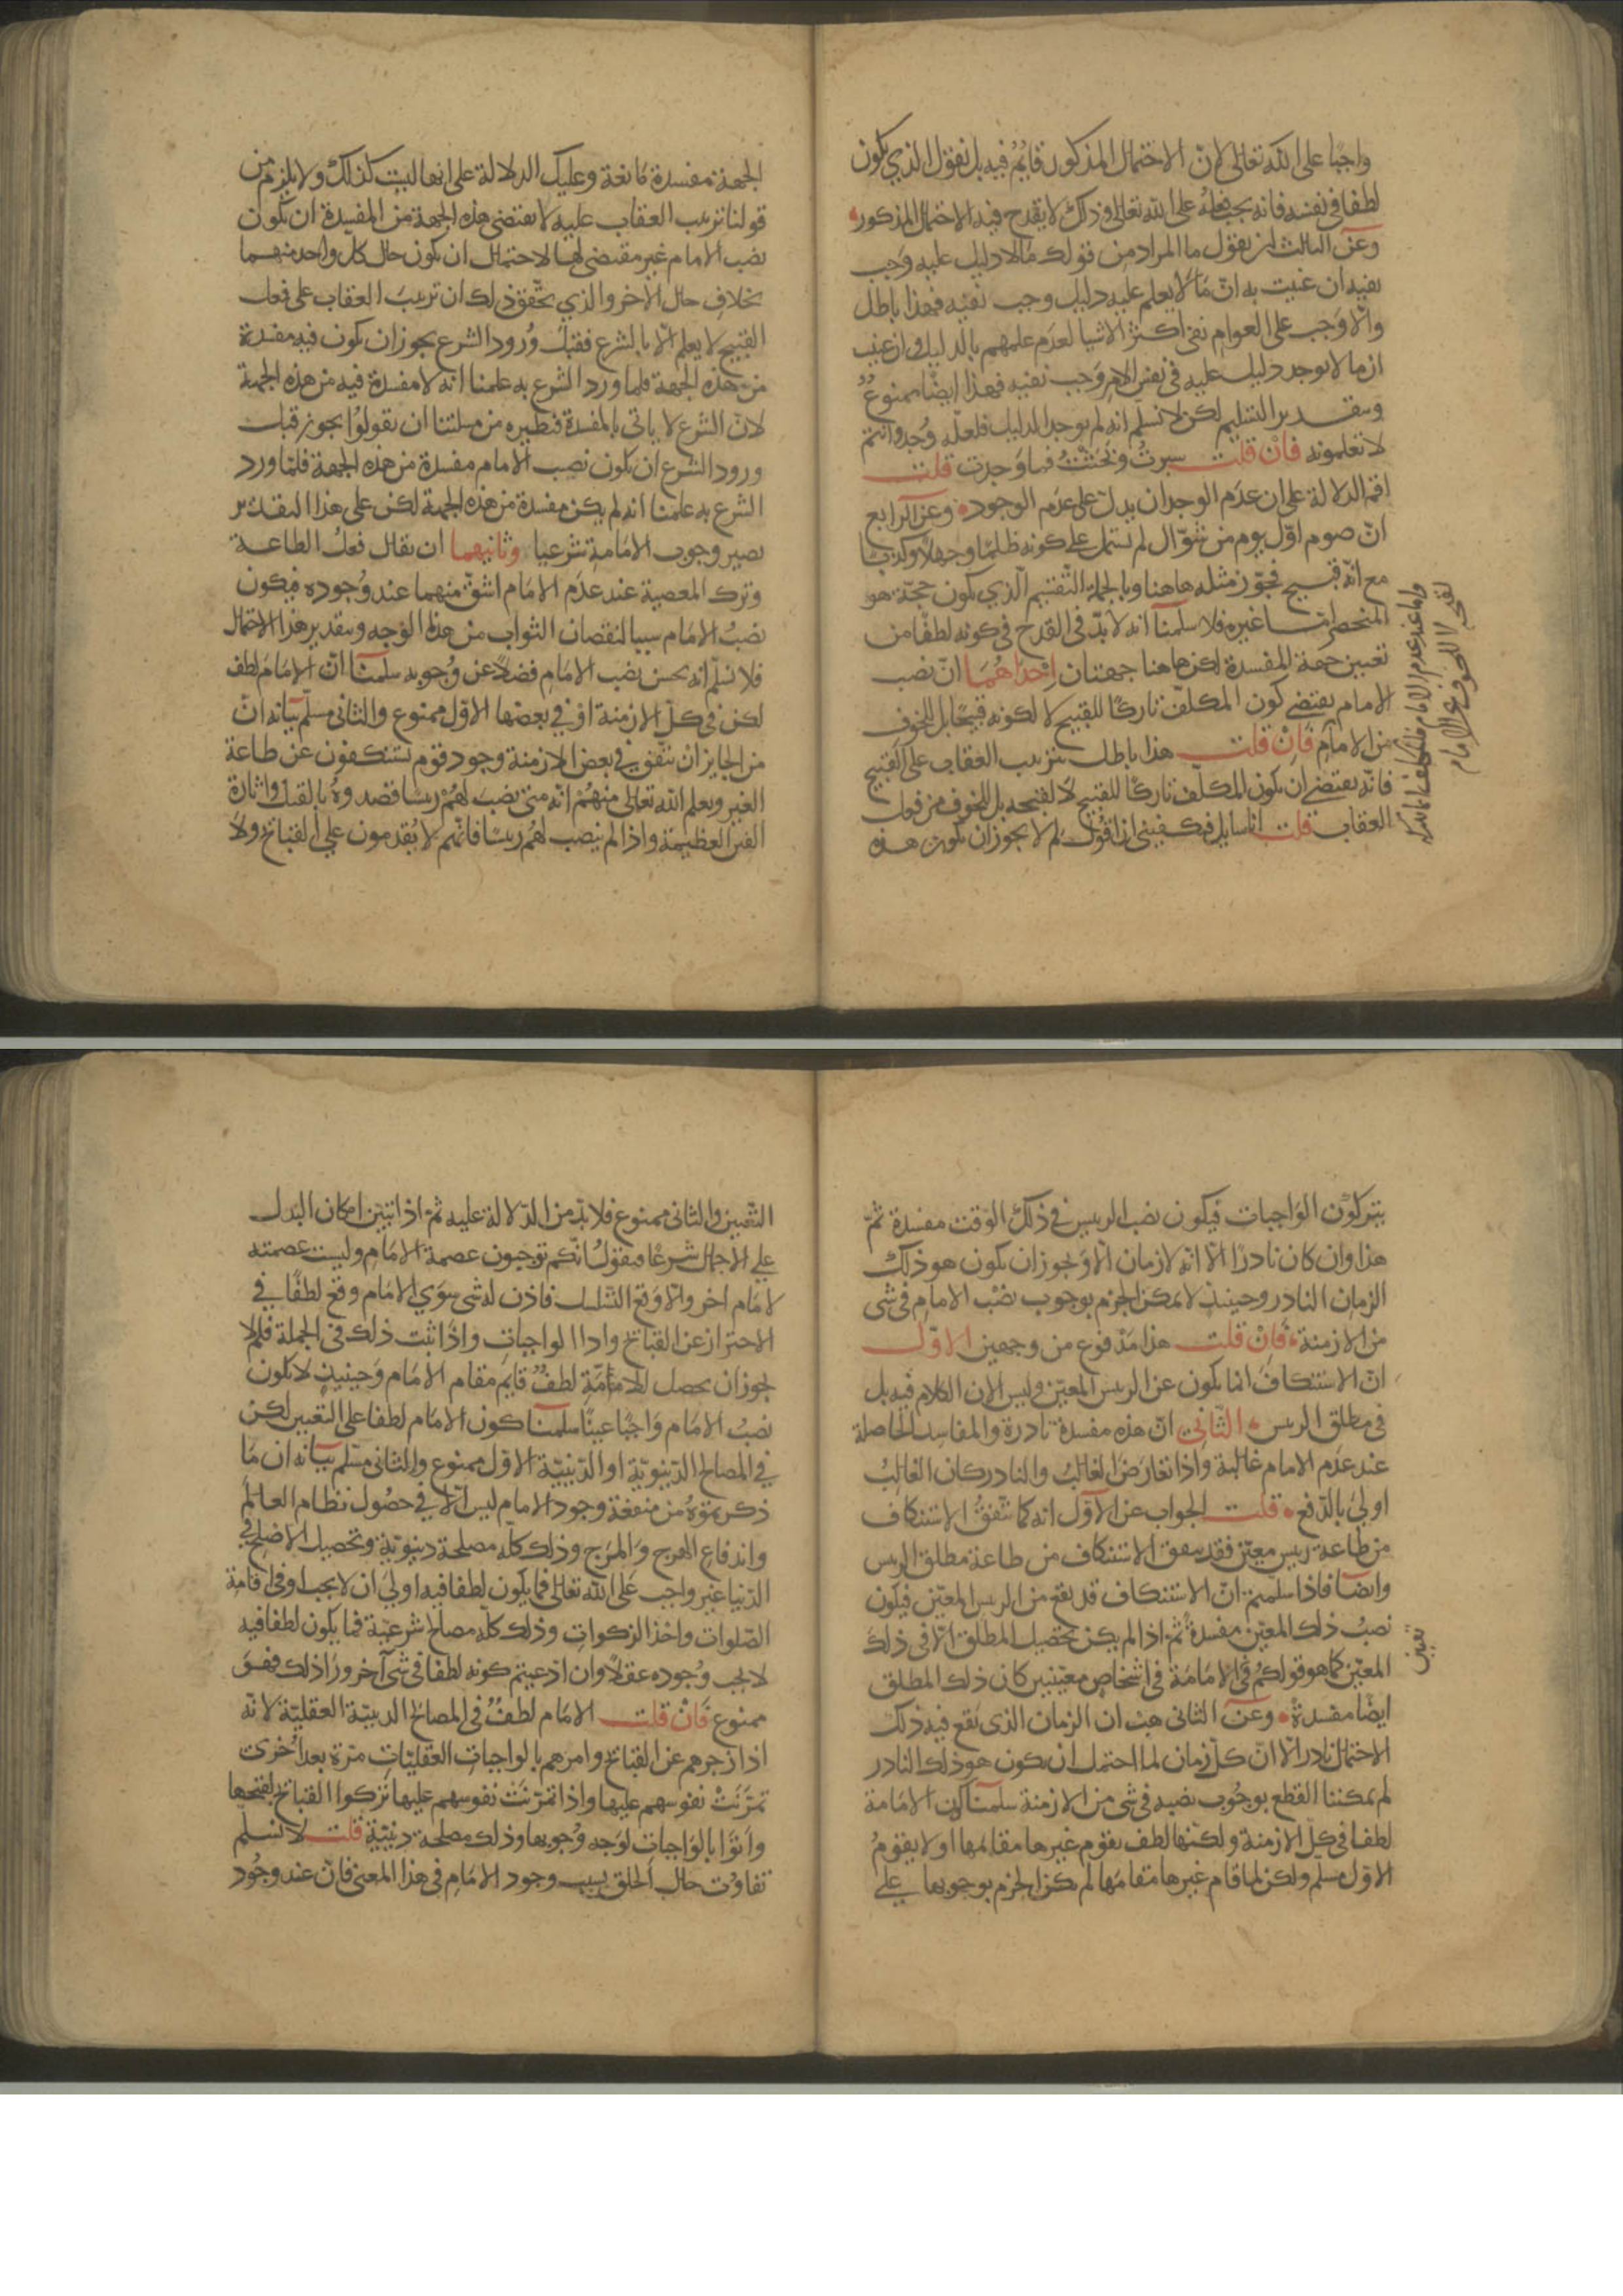 واجبًا على الله تعالى لانّ الاحتمال المذكور قايمٌ فيه بل نقول الذي يكون
لطفا في نفسه فانه يجب فعله على الله تعالى وذلك لا يقدح فيه الاحتمال المذكور
وعن الثالث ان نقول ما المراد من قولك ما لا دليل عليه وجب
نفيه ان عنيت به انّ ما لا يعلم عليه دليل وجب نفيه فهذا باطل
والّا وجب على العوام نفى اكثر الاشيا لعدم علمهم بالدليل وان عنيت
ان ما لا يوجد دليل عليه في نفس الامر وجب نفيه فهذا ايضًا ممنوعٌ
وبتقدير التسليم لكن لا نسلّم انه لم يوجد الدليل فلعلّه وُجد وانتم
لا تعلمونه فان قلت سبرتُ وبحثتُ فما وجدت قلت
اقم الدلالة على ان عدم الوجدان يدل على عدم الوجود وعن الرابع
انّ صوم اوّل يوم من شوّال لم يشتمل على كونه ظلمًا وجهلًا وكذبًا
مع انّه قبيح فجوّز مثله هاهنا وبالجملة التقسيم الّذي يكون حجّة هو
المنحصر امّا غيره فلا سلمنا انه لا بدّ في القدح في كونه لطفًا من
تعيين جهة المفسدة لكن هاهنا جهتان احداهما انّ نصب
الامام يقتضي كون المكلّف تاركًا للقبيح لا لكونه قبيحًا بل للخوف
من الامام فان قلت هذا باطل بترتيب العقاب على القبيح
فانّه يقتضي ان يكون المكلّف تاركًا للقبيح لا لقبحه بل للخوف من فعل
العقاب قلت انا سايل فيكفيني ان اقول لم لا يجوز ان تكون هذه
واما عند عدم الامام فالمكلف انما يتركه
لقبحه لا للخوف من الامام
الجهة مفسدة مانعة وعليك الدلالة على انها ليست كذلك ولا يلزم من
قولنا ترتيب العقاب عليه لا يقتضى هذه الجهة من المفسدة ان يكون
نصب الامام غير مقتضى لها لاحتمال ان يكون حال كل واحد منهما
بخلاف حال الاخر والذي يحقّق ذلك ان ترتيب العقاب على فعل
القبيح لا يعلم الّا بالشرع فقبل وُرود الشرع يجوز ان يكون فيه مفسدة
من هذه الجهة فلما ورد الشرع به علمنا انه لا مفسدة فيه من هذه الجهة
لانّ الشرع لا ياتي بالمفسدة فنظيره من مسلتنا ان تقولوا يجوز قبل
ورود الشرع ان يكون نصب الامام مفسدة من هذه الجهة فلمّا ورد
الشرع به علمنا انه لم يكن مفسدة من هذه الجهة لكن على هذا التقدير
يصير وجوب الامامة شرعيا وثانيهما ان يقال فعل الطاعة
وترك المعصية عند عدم الامام اشقّ منهما عند وجوده فيكون
نصبُ الامام سببا لنقصان الثواب من هذا الوجه وبتقدير هذا الاحتمال
فلا نسلّم انه يحسن نصب الامام فضلًا عن وجوبه سلمنا انّ الامام لطف
لكن في كلّ الازمنة او في بعضها الاوّل ممنوع والثانى مسلّم بيانه انّ
من الجايز ان يتفق في بعض الازمنة وجود قوم يستنكفون عن طاعة
الغير ويعلم الله تعالى منهم انّه متى نصب لهُم ريسًا قصدوهُ بالقتل واثارة
الفتن العظيمة واذا لم ينصب لهم ريسًا فانّهم لا يُقدمون على القبايح ولا
يتركون الواجبات فيكون نصب الريس في ذلك الوقت مفسدة ثمّ
هذا وان كان نادرًا الّا انّه لا زمان الّا ويجوز ان يكون هو ذلك
الزمان النادر وحينيذ لا يمكن الجزم بوجوب نصب الامام في شي
من الازمنة فان قلت هذا مدفوع من وجهين الاوّل
انّ الاستنكاف انما يكون عن الريس المعيّن وليس الان الكلام فيه بل
في مطلق الريس الثاني انّ هذه مفسدة نادرة والمفاسد الحاصلة
عند عدم الامام غالبة واذا تعارض الغالب والنادر كان الغالبُ
اولى بالدّفع قلت الجواب عن الاوّل انه كما يتّفق الاستنكاف
من طاعة ريس معيّن فقد يتفق الاستنكاف من طاعة مطلق الريس
وايضا فاذا سلّمتم انّ الاستنكاف قد يقع من الريس المعيّن فيكون
نصبُ ذلك المعيّن مفسدةً ثمّ اذا لم يكن تحصيل المطلق الّا في ذلك
المعيّن كما هو قولكم في الامامة في اشخاص معيّنين كان ذلك المطلق
ايضًا مفسدةً وعن الثاني هب ان الزمان الذي يقع فيه ذلك
الاحتمال نادر الّا انّ كلّ زمان لما احتمل ان يكون هو ذلك النادر
لم يمكننا القطع بوجوب نصبه في شي من الازمنة سلمنا كون الامامة
لطفا في كلّ الازمنة ولكنّها لطف يقوم غيرها مقامها او لا يقومُ
الاوّل مسلم ولكن لما قام غيرها مقامها لم يمكن الجزم بوجوبها على
تعيين
التّعيين والثانى ممنوع فلا بدّ من الدّلالة عليه ثمّ اذا تبيّن امكان البدل
على الاجمال شرعًا فنقول انّكم توجبون عصمة الامام وليست عصمته
لامام اخر والّا وقع التسلسل فاذن له شى سوى الامام وقع لطفًا في
الاحتراز عن القبايح واداا لواجبات واذا ثبت ذلك في الجملة فلم لا
يجوز ان يحصل للامّة لطفٌ قايم مقام الامام وحينيذ لا يكون
نصبُ الامام واجبًا عينًا سلمنا كون الامام لطفا على التعيين لكن
في المصالح الدّنيويّة او الدّينيّة الاوّل ممنوع والثانى مسّلم بيانه ان ما
ذكرتموهُ من منفعة وجود الامام ليس الّا في حصول نظام العالم
واندفاع الهرج والمرج وذلك كلّه مصلحة دنيويّة وتحصيل الاصلح في
الدّنيا غير واجب على الله تعالى فما يكون لطفا فيه اولى ان لا يجب او في اقامة
الصّلوات واخذ الزكوات وذلك كلّه مصالح شرعيّة فما يكون لطفا فيه
لا يجب وجوده عقلًا وان ادعيتم كونه لطفا في شى آخر ورآ ذلك فهو
ممنوع فان قلت الامام لطفٌ في المصالح الدينيّة العقليّة لانّه
اذا زجرهم عن القبايح وامرهم بالواجبات العقليّات مرّة بعد أخرى
تمرّنت نفوسهم عليها واذا تمرّنت نفوسهم عليها تركوا القبايح لقبحها
واتوا بالواجبات لوجه وجوبها وذلك مصلحة دينيّة قلت لا نسلّم
تفاوُت حال الخلق بسبب وجود الامام في هذا المعنى فانّ عند وجود